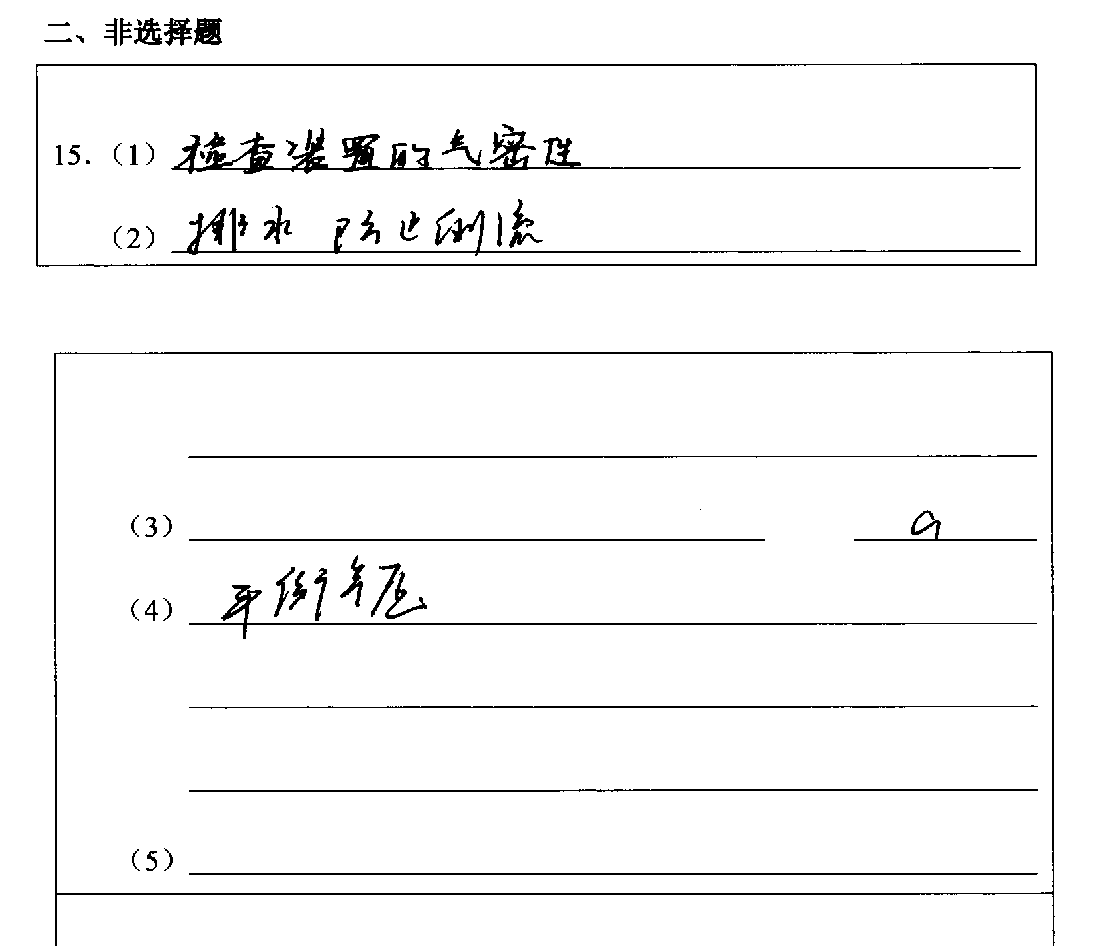 二、非选择题
15.（1）检查装置的气密性
（2）排水 防止倒流
（3） a
（4）平衡气压
（5）